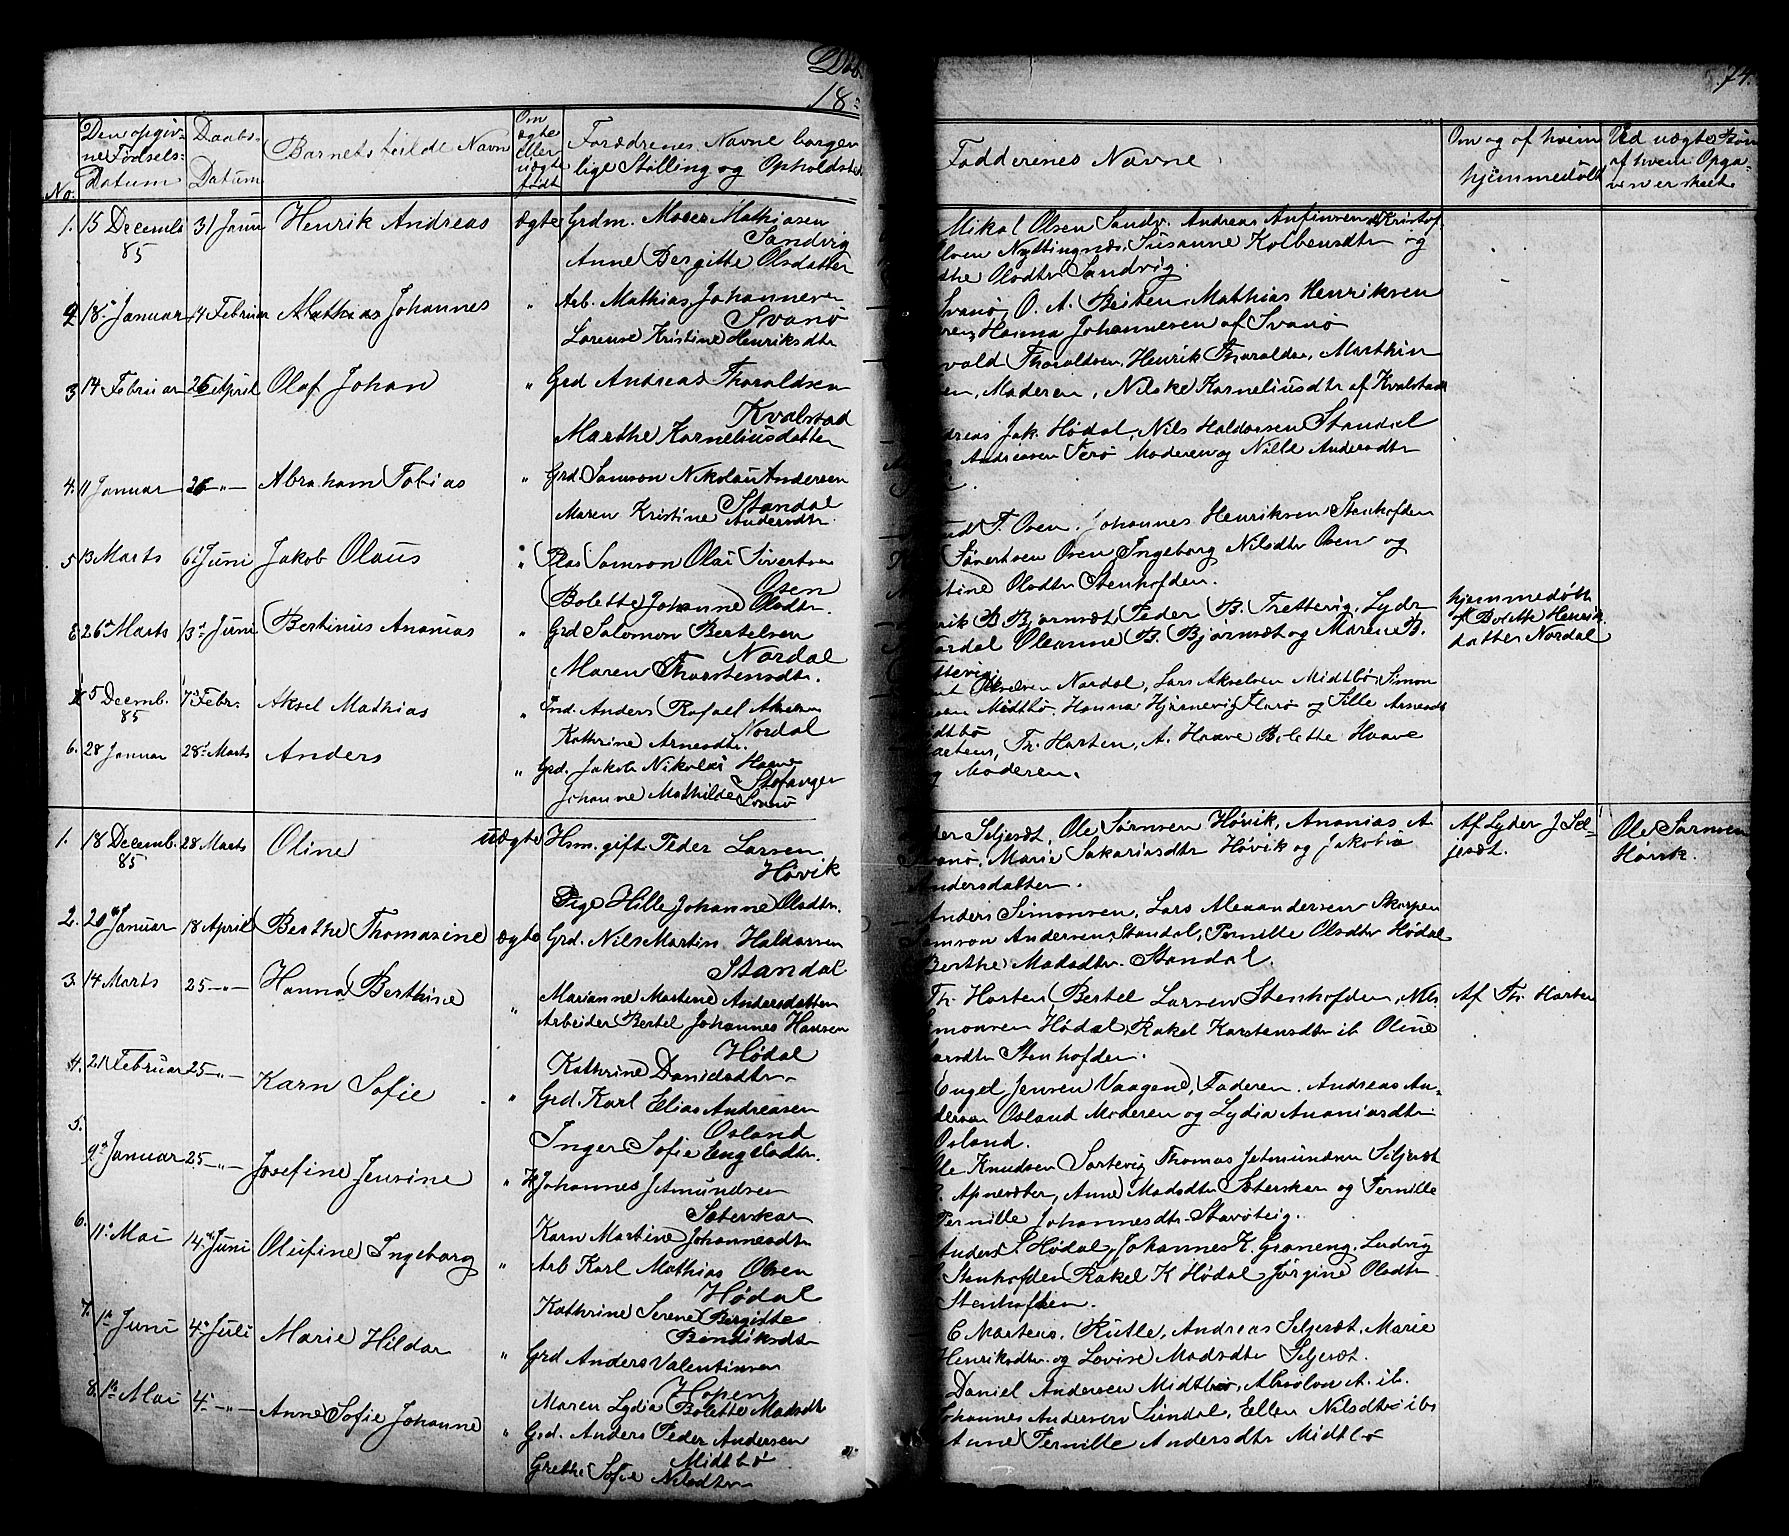 Døb
18
74.
Den opgiv-
ne Fødsels-
Datum
Daabs-
Datum
Barnets fulde Navn
Om
ægte
eller
uægte
født
Forældrenes Navne borger
lige Stilling og Opholdsted
Fadderenes Navne
Om og af hvem
hjemmedøbt
Ved uægte Børn
af hvem Opga-
ven er skeet
No.
1. 15 Decemb 31 Janu Henrik Andreas ægte Grdm. Mathiasen
85
Sandvig
Anne Bergitte Olsdatter
Mikal Olsen Sandv. Andreas Antinsen Kristof
Nyttingnæs, Susanne Kolbensdtr og
Olsdtr Sandvig.
2. 18 Januar 14 Februar Mathias Johannes " Arb. Mathias Johannesen
Svanø
Lorense Kristine Henriksdtr
Svanø, O. A. Beiten, Mathias Henriksen
Hanna Johannesen af Svanø
3 14 Februar 26 April Olaf Johan " Grd Andreas Tharaldsen
Kvalstad
Marthe Korneliusdatter
vald Tharaldsen, Henrik Tharaldsen, Marthin
en, Moderen, Nilske Korneliusdtr af Kvalstad
4. 11 Januar 26 -"- Abraham Tobias " Grd. Samson Nikolai Andersen
Standal
Maren Kristine Andersdtr.
dreas Jak. Hødal, Nils Haldorsen Standal
Andreasen Terø Moderen og Nille Andersdtr
5 13 Marts 6 Juni Jakob Olaus " Plds Samson Olai Sivertsen
Osen
Bolette Johanne Olsdtr.
T. Osen. Johannes Henriksen Stenhofden
Sivertsen Osen Ingeborg Nilsdtr Osen og
tine Olsdtr Stenhofden.
26 Marts 13 Juni Bertinius Ananias " Grd Salomon Bertelsen
Nordal
Maren Tharstensdtr.
rik B Bjørnsæt, Peder B. Trettevig, Lydr
ordal Oleanne B. Bjørnsæt og Maren B.
ttevig
hjemmedøbt
af Bolette Henrik
datter Nordal
5 Decemb. 7 Febr. Aksel Mathias " Grd. Anders Rafael Aksen
85
Nordal
Kathrine Arnesdtr.
Nordal, Lars Akselsen Midtbø, Simon
Midtbø, Hanna Hjørnevig Florø og Sille Arnesdt
dtbø
6. 28 Januar 28 Marts Anders " Grd. Jakob Nikolai Haave
Stafanger
Johanne Mathilde Svanø
Th. Harten, A. Haave Bolette Haave
g Moderen.
1. 18 Decemb. 28 Marts Oline uægte Hsm. gift Peder Larsen
85
Høvik
Pige Hille Johanne Olsdtr.
Seljesæt, Ole Sørnsen Høvik, Ananias A
Svanø, Marie Sakariasdtr Høvik og Jakobia
Andersdatter.
Af Lyder J Sel-
jesæt.
Ole Sørnsen
Høvik.
2. 20 Januar 18 April Berthe Thomasine ægte Grd. Nils Martin Haldorsen
Standal
Marianne Martine Andersdatter
Anders Simonsen, Lars Alexandersen Skorpen
Samson Andersen, Standal, Pernille Olsdtr Hødal
Berthe Madsdtr. Standal.
3. 14 Marts 25 -"- Hanna Berthine " Arbeider Bertel Johannes Hansen
Hødal
Kathrine Danielsdtr
Th. Harten, Bertel Larsen Stenhofden, Nils
Simonsen Hødal, Rakel Karstensdtr ib Oline
Larsdtr Stenhofden.
Af Th. Harten
4. 21 Februar 25 -"- Karn Sofie " Grd. Karl Elias Andreasen
Osland
Inger Sofie Engelsdtr.
Engel Jensen Vaagene, Faderen. Andreas An-
dersen Osland Moderen og Lydia Ananiasdtr
Osland.
5. 9 Januar 25 -"- Josefine Jensine " H Johannes Jetmundsen
Sæterskar
Karn Martine Johannesdtr
Ole Knudsen Sørtevig Thomas Jetmundsen Seljesæt
Apnesæter, Anne Madsdtr Sæterskar og Pernille
Pernille Johannesdtr. Stavøteig.
6. 11 Mai 14 Juni Olufine Ingeborg " Arb Karl Mathias Olsen
Hødal
Kathrine Serene Bergitte
Bendiksdtr
Anders S. Hødal, Johannes K. Graneng, Ludvig
Stenhofden, Rakel K Hødal, Jørgine Olsdtr
Stenhofden.
7. 1 Juni 4 Juli Marie Hildar " Grd Anders Valentinsen
Hopen
Maren Lydia Bolette Madsdtr
C Martens, Rutle, Andreas Seljesæt, Marie
Henriksdtr. og Lovise Madsdtr Seljesæt.
8. Mai 4 -"- Anne Sofie Johanne " Grd. Anders Peder Andersen
Midtbø
Grethe Sofie Nilsdtr
Daniel Andersen Midtbø, Absolon A. ib.
Johannes Andersen Sundal, Ellen Nilsdtr ib
Anne Pernille Andersdtr Midtbø